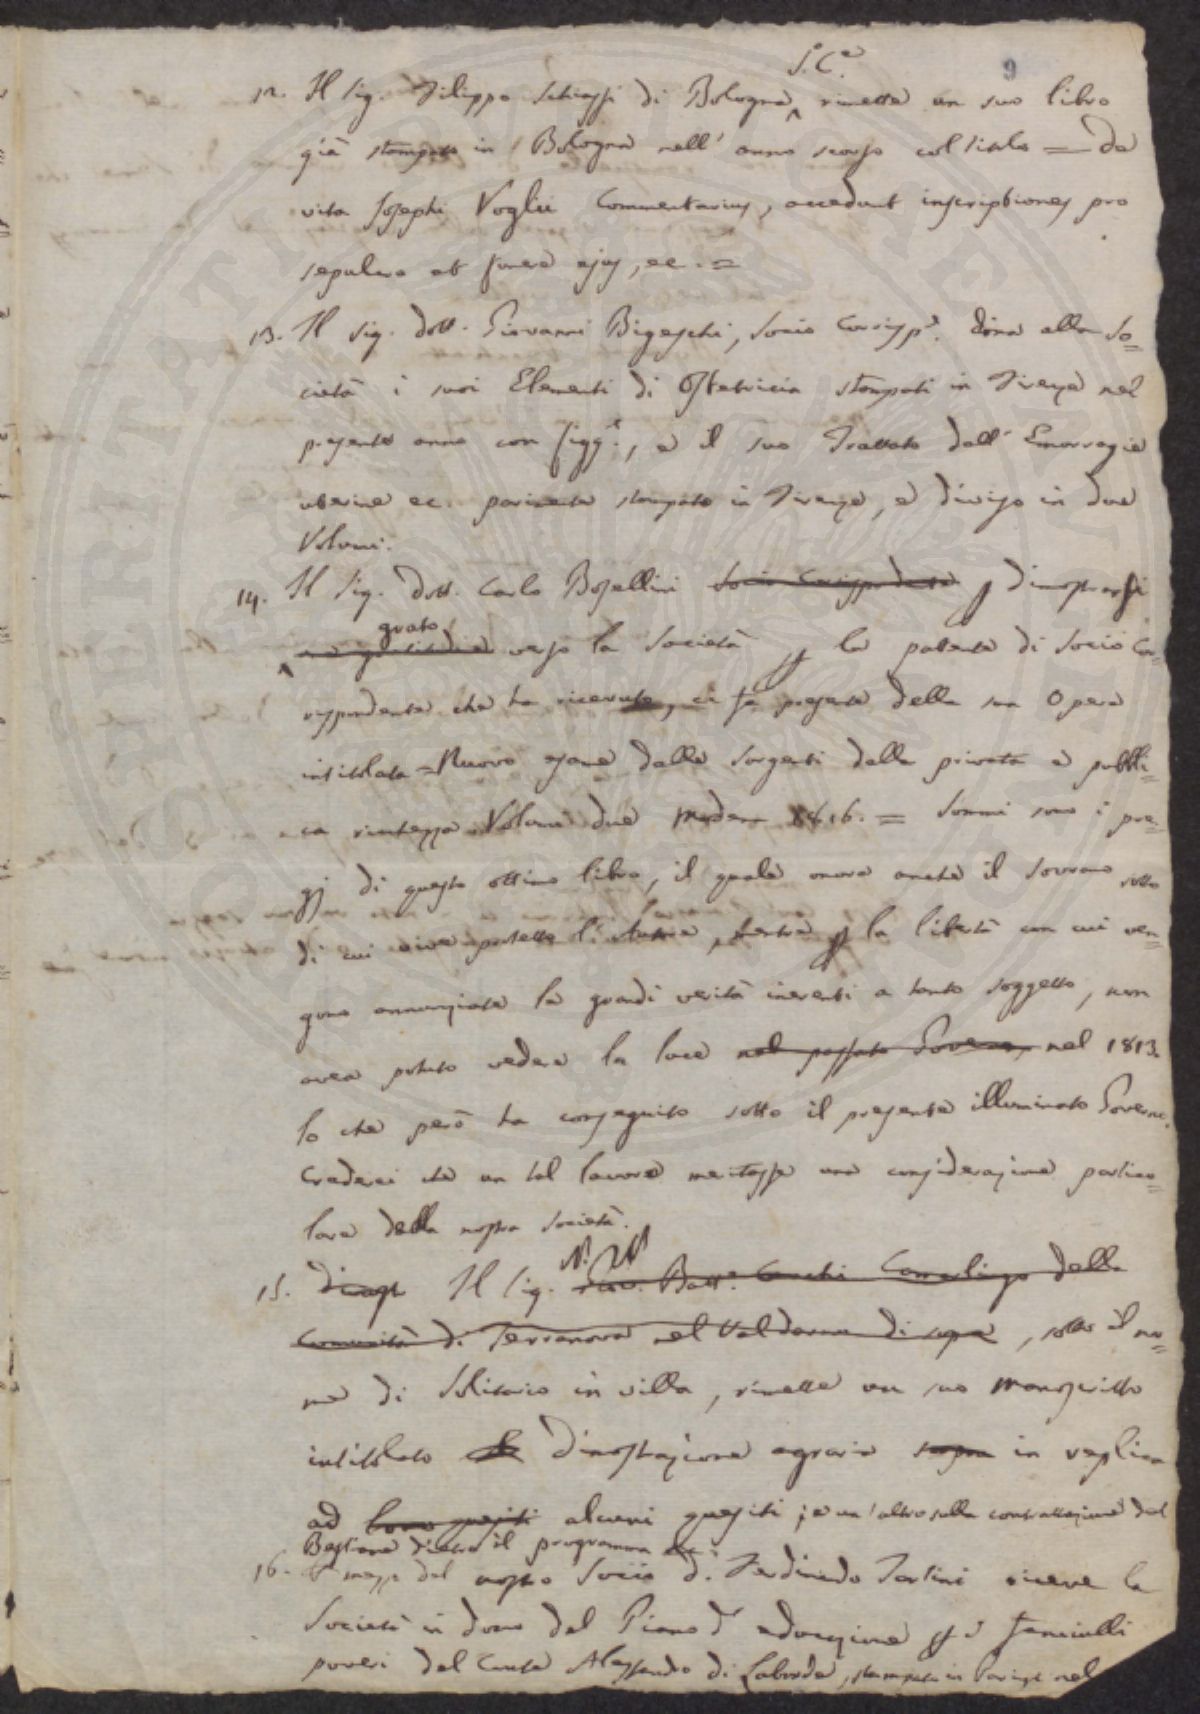 9
S. C.e
12. Il Sig. Filippo Schiassi di Bologna ^ rimette un suo libro
già stampato in Bologna nell' anno scorso col titolo = De
vita Josephi Voglii Commentarius, accedunt inscriptiones pro
sepulcro et funere ejus, ec. =
13. Il Sig. Dott. Giovanni Bigeschi, Socio Corrisp.e dona alla So=
cietà i suoi Elementi di Ostetricia stampati in Firenze nel
presente anno con figg.e, e il suo Trattato dell' Emorragie
uterine ec. parimente stampato in Firenze, e diviso in due
Volumi.
14. Il Sig. Dott. Carlo Bosellini Socio Corrispondente p dimostrarsi
grato
^ verso la Società p la patente di Socio Cor=
rispondente che ha ricevuta, ci fa presente della sua Opera
intitolata = Nuovo esame delle sorgenti della privata e pubbli=
ca ricchezza Volumi due Modena 1816. = Sommi sono i pre=
gj di questo ottimo libro, il quale onora anche il Sovrano sotto
di cui vive protetto l' Autore, mentre p la libertà con cui ven=
gono annunziate le grandi verità inerenti a tanto soggetto, non
avea potuto vedere la luce nel passato Governo, nel 1813.
lo che però ha conseguito sotto il presente illuminato Governo.
Crederei che un tal lavoro meritasse una considerazione partico=
lare della nostra Società.
N. N.
15. Il Sig. Giov. Batt.a Cancelliere della
Comunità di Terranova nel Valdarno di sopra, sotto il no=
me di Solitario in villa, rimette un suo manoscritto
intitolato Dimostrazione agraria sopra in replica
ad quesiti alcuni quesiti; e un' altro sulla contrattazione del
Bestiame dietro il programma
16. P mezzo del nostro Socio D. Ferdinando Tartini riceve la
Società in dono del Piano d' educazione p i fanciulli
poveri del Conte Alessandro di Laborde, stampato in Parigi nel